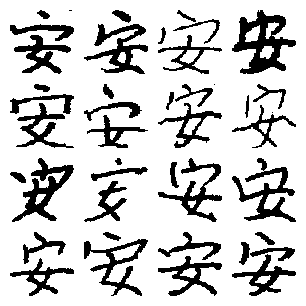 安安安安
安安安安
安安安安
安安安安